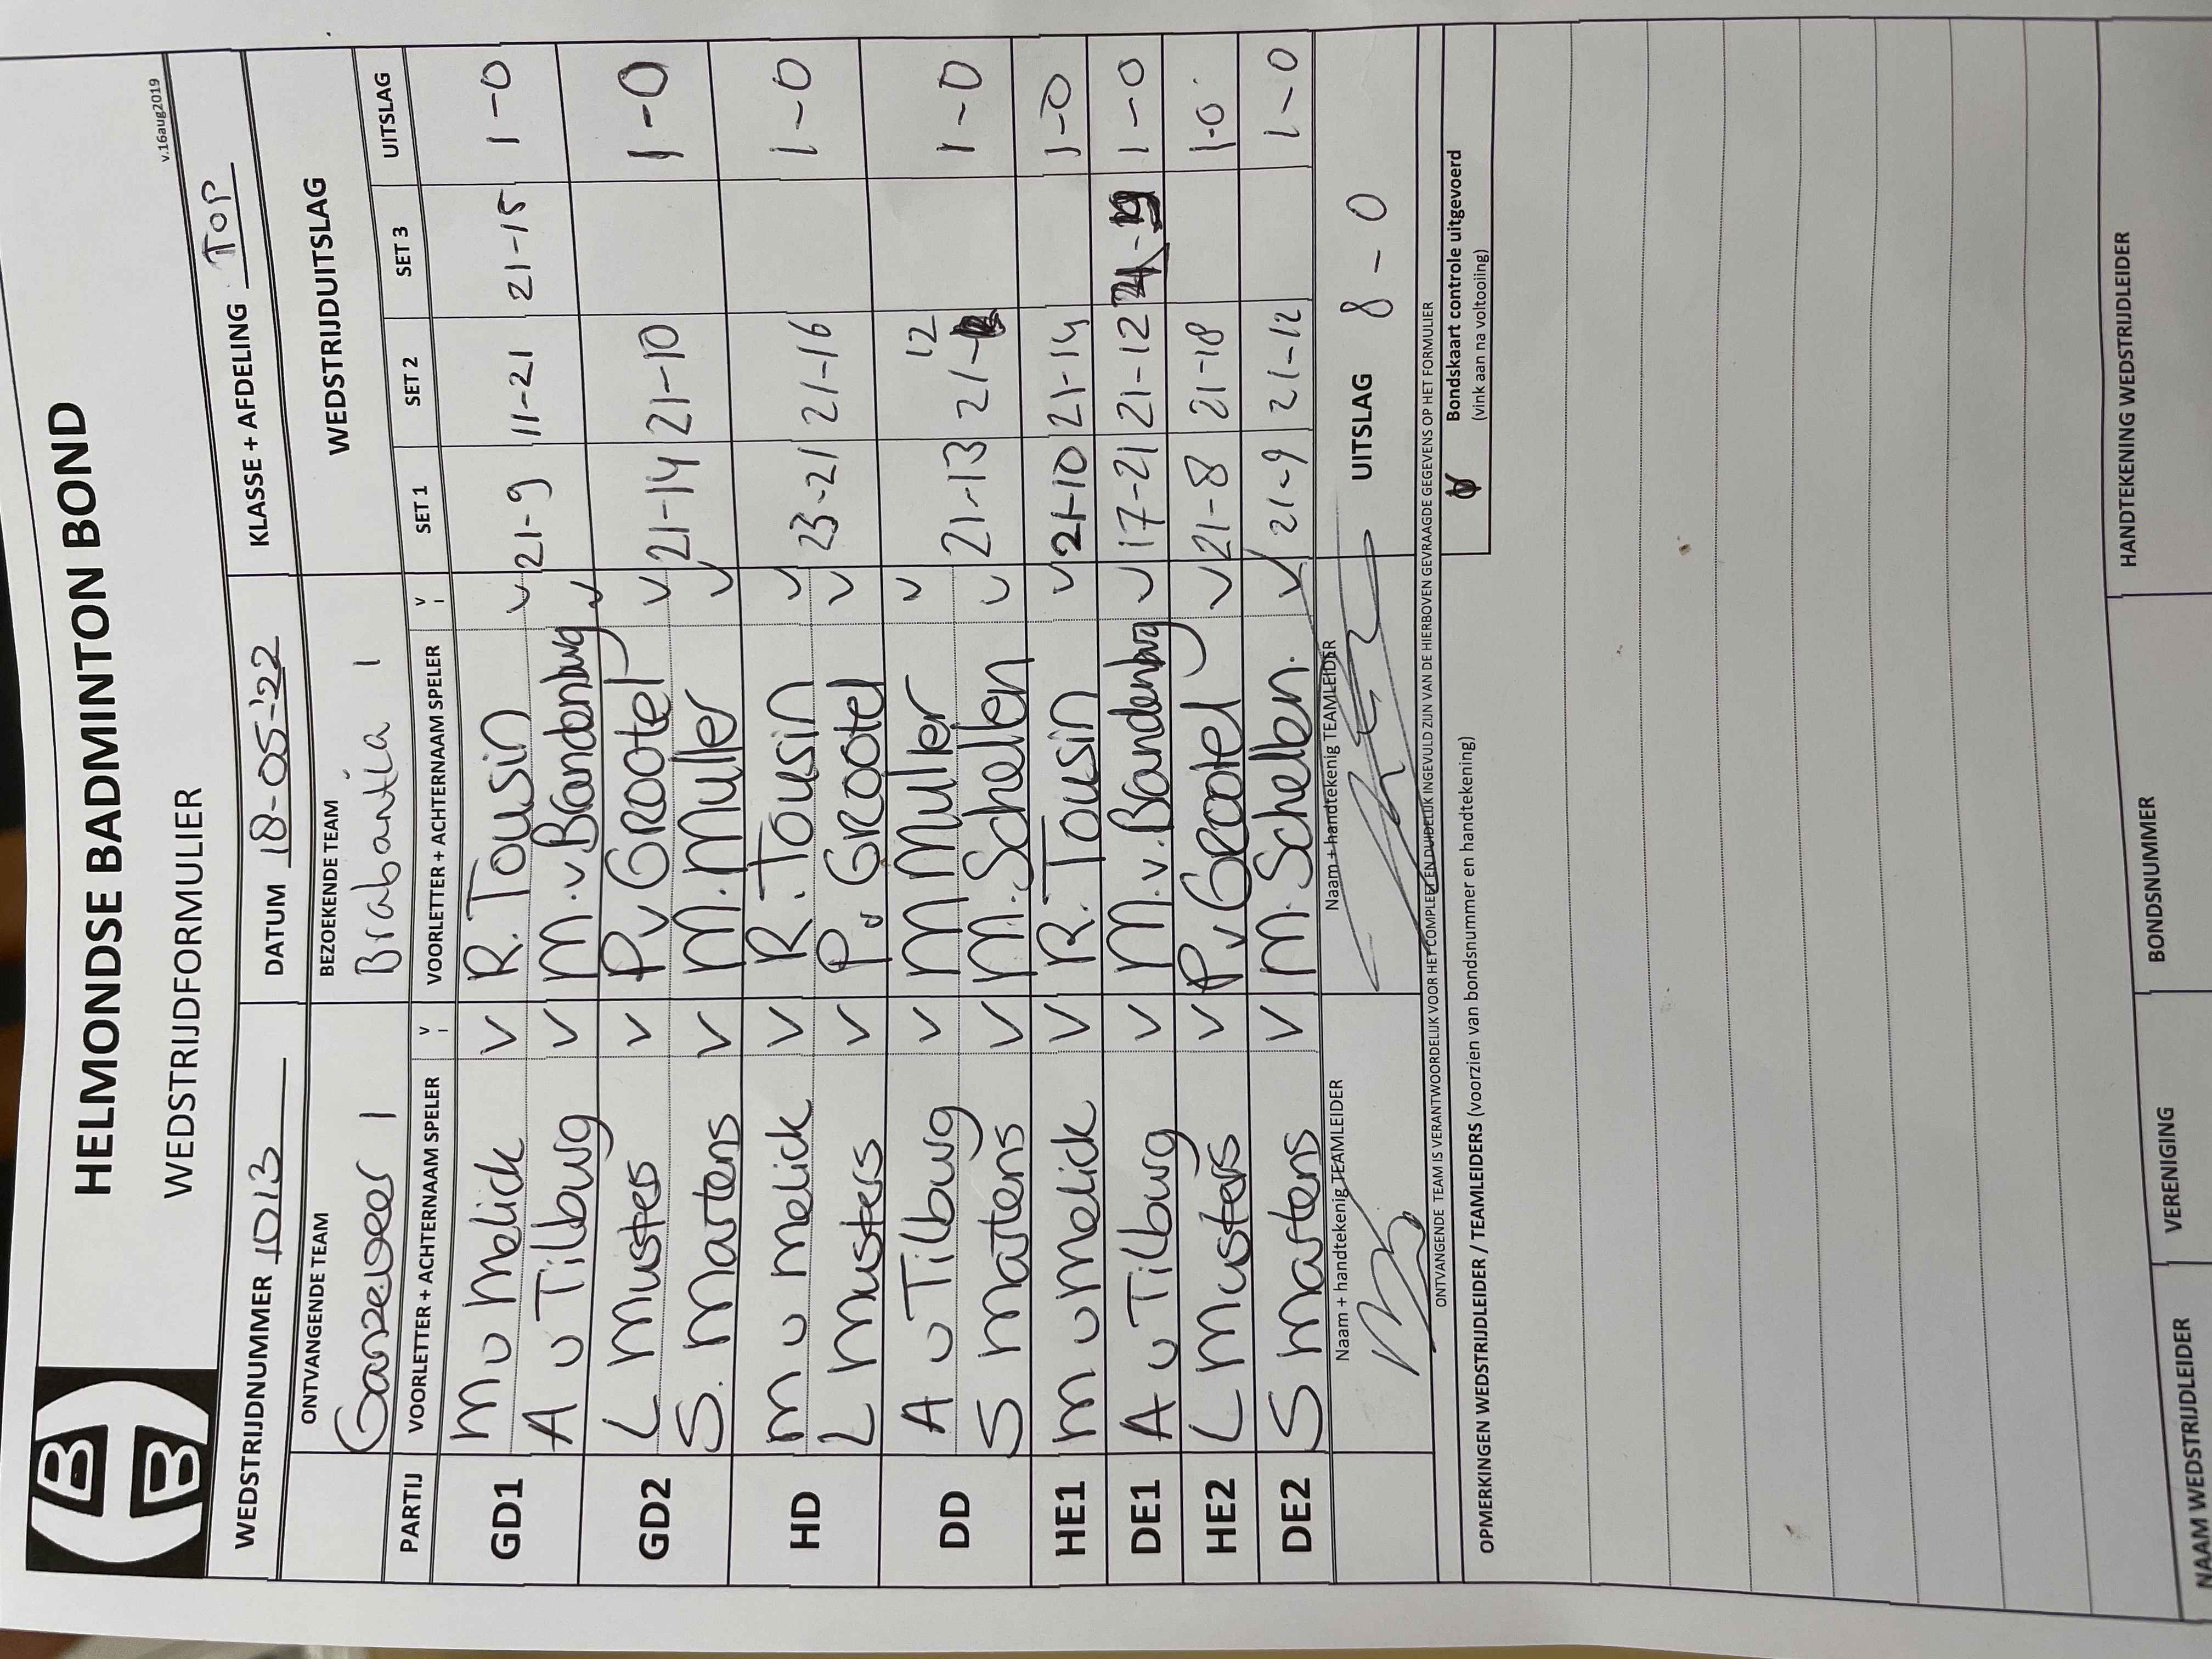 HELMONDSE BADMINTON BOND
WEDSTRIJDFORMULIER
v.16aug2019
WEDSTRIJDNUMMER 1013 DATUM 18-05-'22 KLASSE + AFDELING TOP
ONTVANGENDE TEAM BEZOEKENDE TEAM WEDSTRIJDUITSLAG
Ganzeveer 1 Brabantia 1
PARTIJ VOORLETTER + ACHTERNAAM SPELER V VOORLETTER + ACHTERNAAM SPELER V SET 1 SET 2 SET 3 UITSLAG
GD1 M v Melick V R. Tousin V 21-9 11-21 21-15 1-0
A v Tilburg V M. v Brandenburg V
GD2 L Musters V P v GROOTel V 21-14 21-10 1-0
S. Martens V M. Muller V
HD M v Melick V R. Tousin V 23-21 21-16 1-0
L Musters V P. v GROOTel V
DD A v Tilburg V M Muller V 21-13 21-12 1-0
S Matens V M. Schellen V
HE1 M v Melick V R. Tousin V 21-10 21-14 1-0
DE1 A v Tilburg V M. v. Brandenburg V 17-21 21-12 1-0
HE2 L Musters V P v GROOTel V 21-8 21-18 1-0
DE2 S Martens V M. Schellen. V 21-9 21-12 1-0
Naam + handtekenig TEAMLEIDER Naam + handtekenig TEAMLEIDER UITSLAG 8-0
ONTVANGENDE TEAM IS VERANTWOORDELIJK VOOR HET COMPLEET EN DUIDELIJK INGEVULD ZIJN VAN DE HIERBOVEN GEVRAAGDE GEGEVENS OP HET FORMULIER
V Bondskaart controle uitgevoerd
(vink aan na voltooiing)
OPMERKINGEN WEDSTRIJDLEIDER / TEAMLEIDERS (voorzien van bondsnummer en handtekening)
NAAM WEDSTRIJDLEIDER VERENIGING BONDSNUMMER HANDTEKENING WEDSTRIJDLEIDER